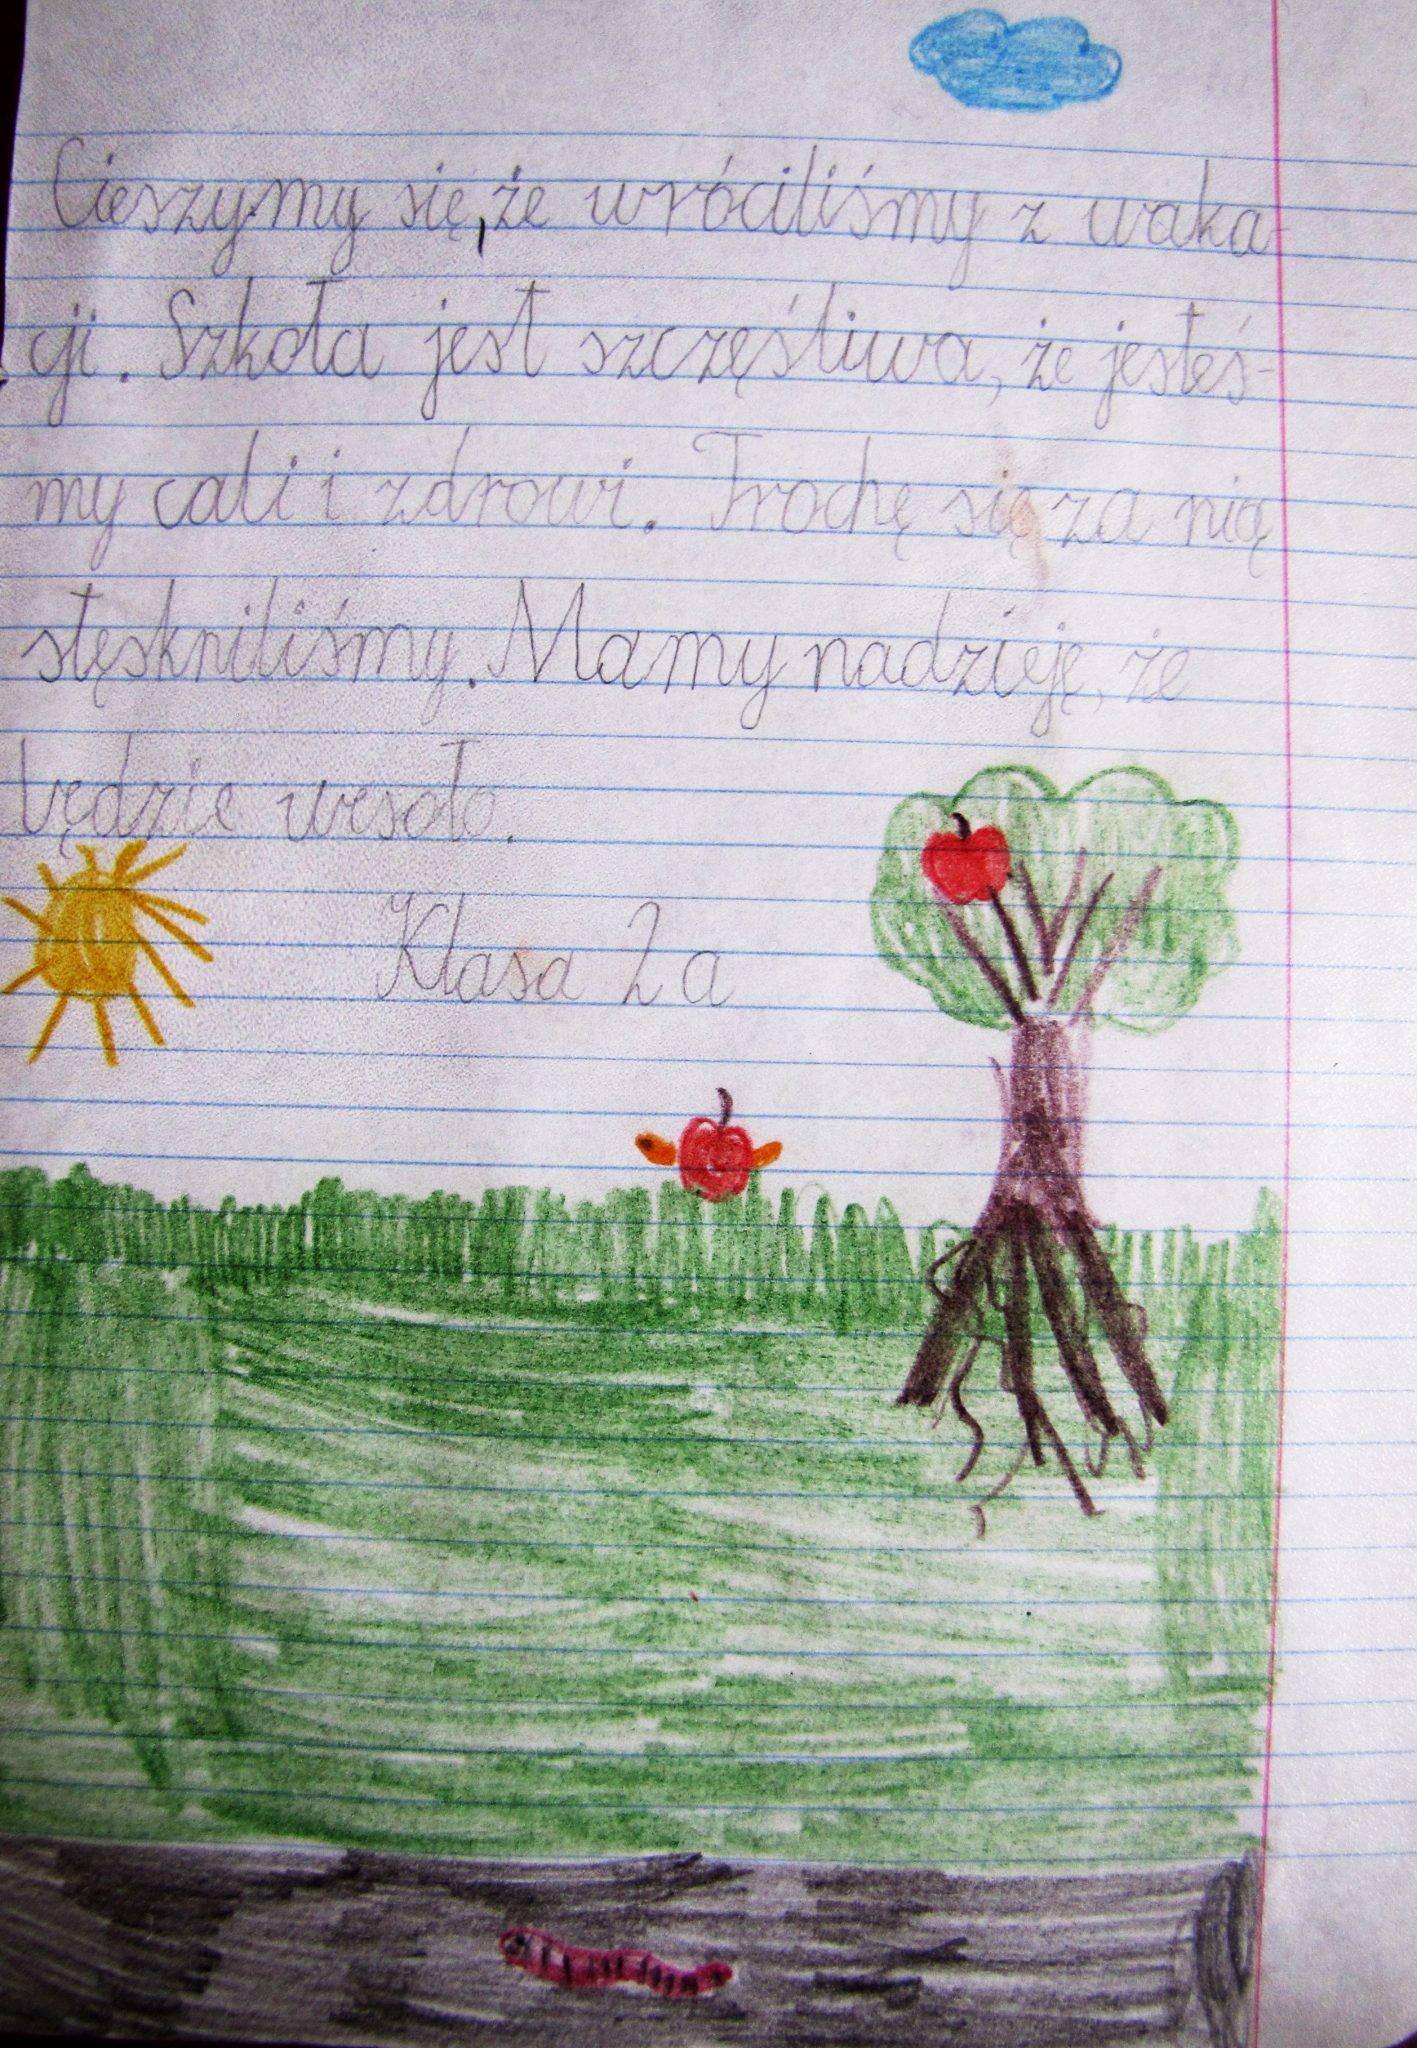 Cieszymy się, że wróciliśmy z waka-
cji. Szkoła jest szczęśliwa, że jesteś-
my cali i zdrowi. Trochę się za nią
stęskniliśmy. Mamy nadzieję, że
będzie wesoło.
Klasa 2a